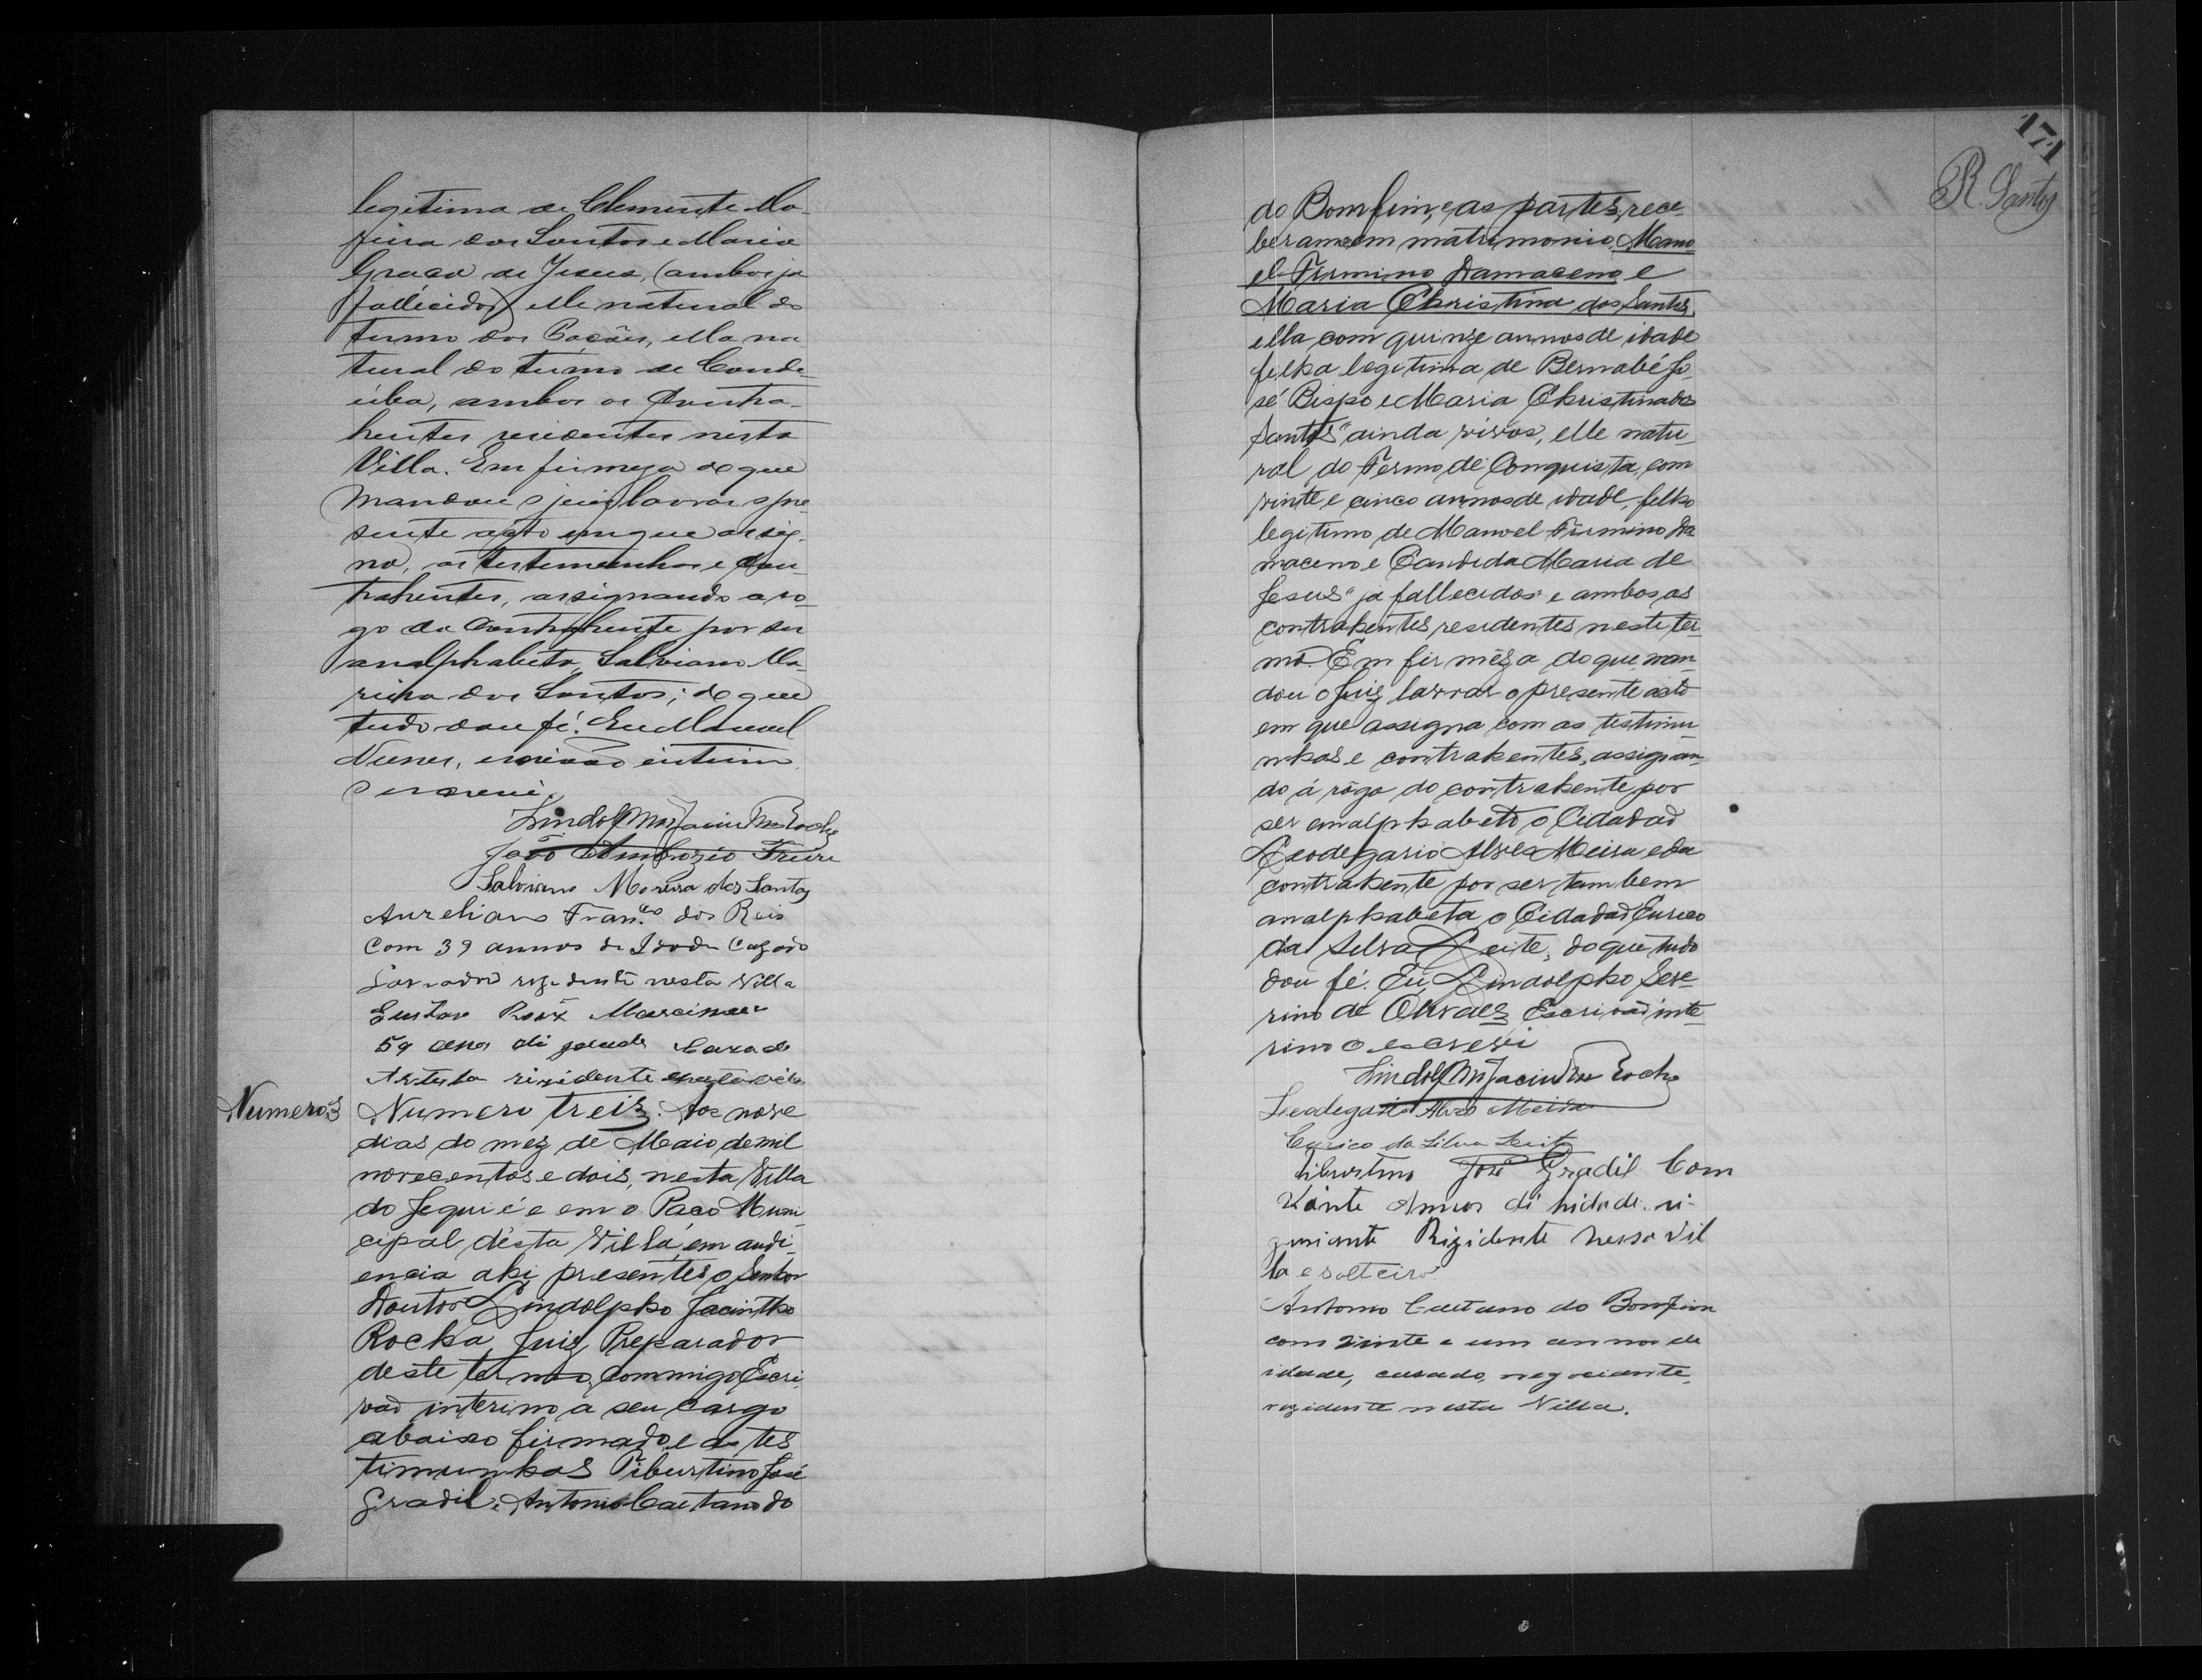 legitima de Clemente Mo-
reira dos Santos e Maria
Graça de Jesus, (ambos ja
fallecidos) elle natural do
termo dos Poções, ella na
tural do termo de Conde-
úba, ambos os Contra-
hentes residentes nesta
Villa. Em firmeza do que
mandou o juiz lavrar o pre
sente acto em que assig-
na, as testemunhas e Con-
trahentes, assignando a ro-
go da Contrahente por ser
analphabeta Salviano Mo-
reira dos Santos; do que
tudo dou fé. Eu Manoel
Nunes, escrivão interino
o escrevi.
Lindolpho Jacintho Rocha
João Ambrozio Freire
Salviano Moreira dos Santos
Aureliano Fran.co dos Reis
Com 39 annos de Idade Cazado
Lavrador rezidente nesta Villa
Gustavo Roiz
59 de idade Cazado
Artista rizidente
Numero 3
Numero treis. Aos nove
dias do mez de Maio de mil
novecentos e dois, nesta Villa
do Jequié e em o Paço Muni
cipal désta Villa, em audi-
encia ahi presentes o Senhor
Doutor Lindolpho Jacintho
Rocha, Juiz Preparador
deste termo, commigo Escri-
vaõ interino a seu cargo
abaixo firmado, e as tes
timunhas Tiburtino José
Gradil e Antonio Caetano do
171
R. Santos
do Bomfim, e as partes, rece-
beram em matrimonio, Mano
el Firmino Damaceno e
Maria Christina dos Santos,
ella com quinze annos de idade
filha legitima de Bernabé Jo-
sé Bispo e Maria Christina dos
Santos "ainda vivos, elle natu-
ral do Termo de Conquista, com
vinte e cinco annos de idade, filho
legitimo de Manoel Firmino Da
maceno e Candida Maria de
Jesus "ja fallecidos" e ambos os
contrahentes residentes neste ter-
mo. Em firmêza do que man-
dou o Juiz lavrar o presente acto
em que assigna com as testimu-
nhas e contrahentes, assignan-
do á rôgo do contrahente por
ser analphabeto o Cidadaõ
Leodegario Alves Meira e da
contrahente por ser tambem
analphabeta o Cidadaõ Eurico
da Silva Leite, do que tudo
dou fé. Eu, Lindolpho Seve-
rino de Escrivaõ inte-
rino o escrevi
Lindolpho Jacintho Rocha
Leodegario Alves Meira
Eurico da Silva Leite
Tiburtino José Gradil Com
Vinte Annos di hidade. ni-
Rizidente nessa Vil
la e solteiro
Antonio Caetano do Bomfim
com vinte e um annos de
idade, casado, negociante,
rezidente nesta Villa.